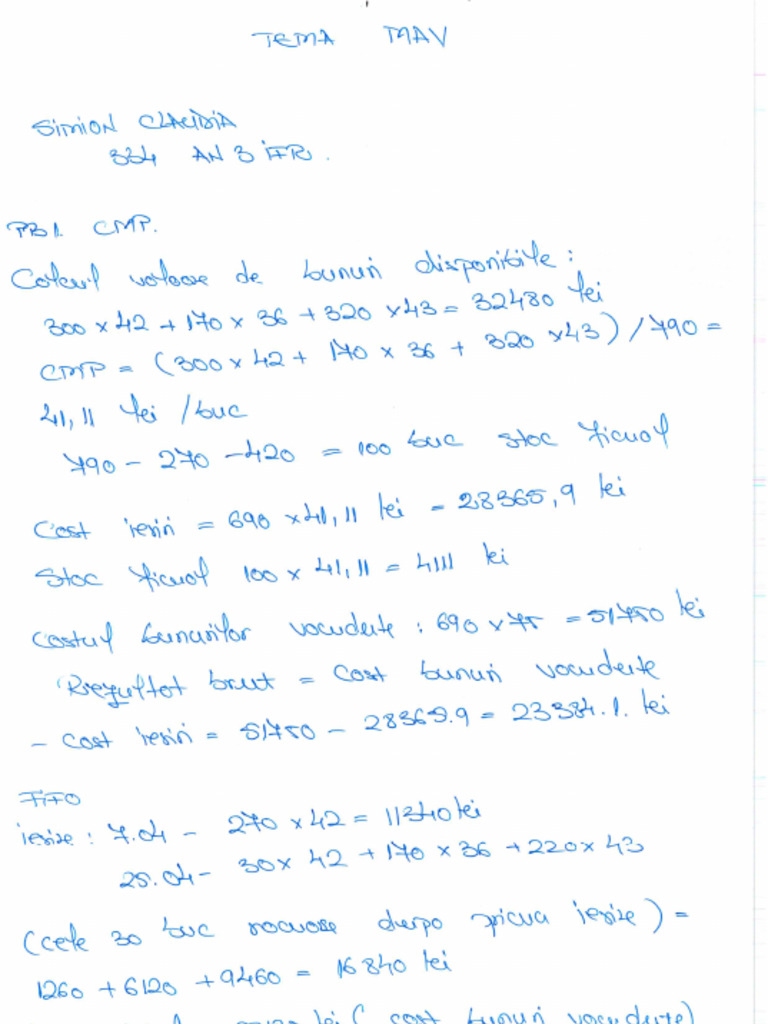 TEMA MAV
SIMION CLAUDIA
334 AN 3 IFR.
PB1. CMP.
Calcul valoare de bunuri disponibile:
300 x 42 + 170 x 36 + 320 x 43 = 32480 lei
CMP = (300 x 42 + 170 x 36 + 320 x 43) / 790 =
41,11 lei /buc
790 - 270 - 420 = 100 buc stoc final
Cost iesiri = 690 x 41,11 lei = 28365,9 lei
Stoc final 100 x 41,11 = 4111 lei
Costul bunurilor vandute: 690 x 75 = 51750 lei
Rezultat brut = cost bunuri vandute
- cost iesiri = 51750 - 28365.9 = 23384.1. lei
FIFO
iesire: 7.04 - 270 x 42 = 11340 lei
25.04 - 30 x 42 + 170 x 36 + 220 x 43
(cele 30 buc ramase dupa prima iesire) =
1260 + 6120 + 9460 = 16840 lei
lei (cost bunuri vandute)